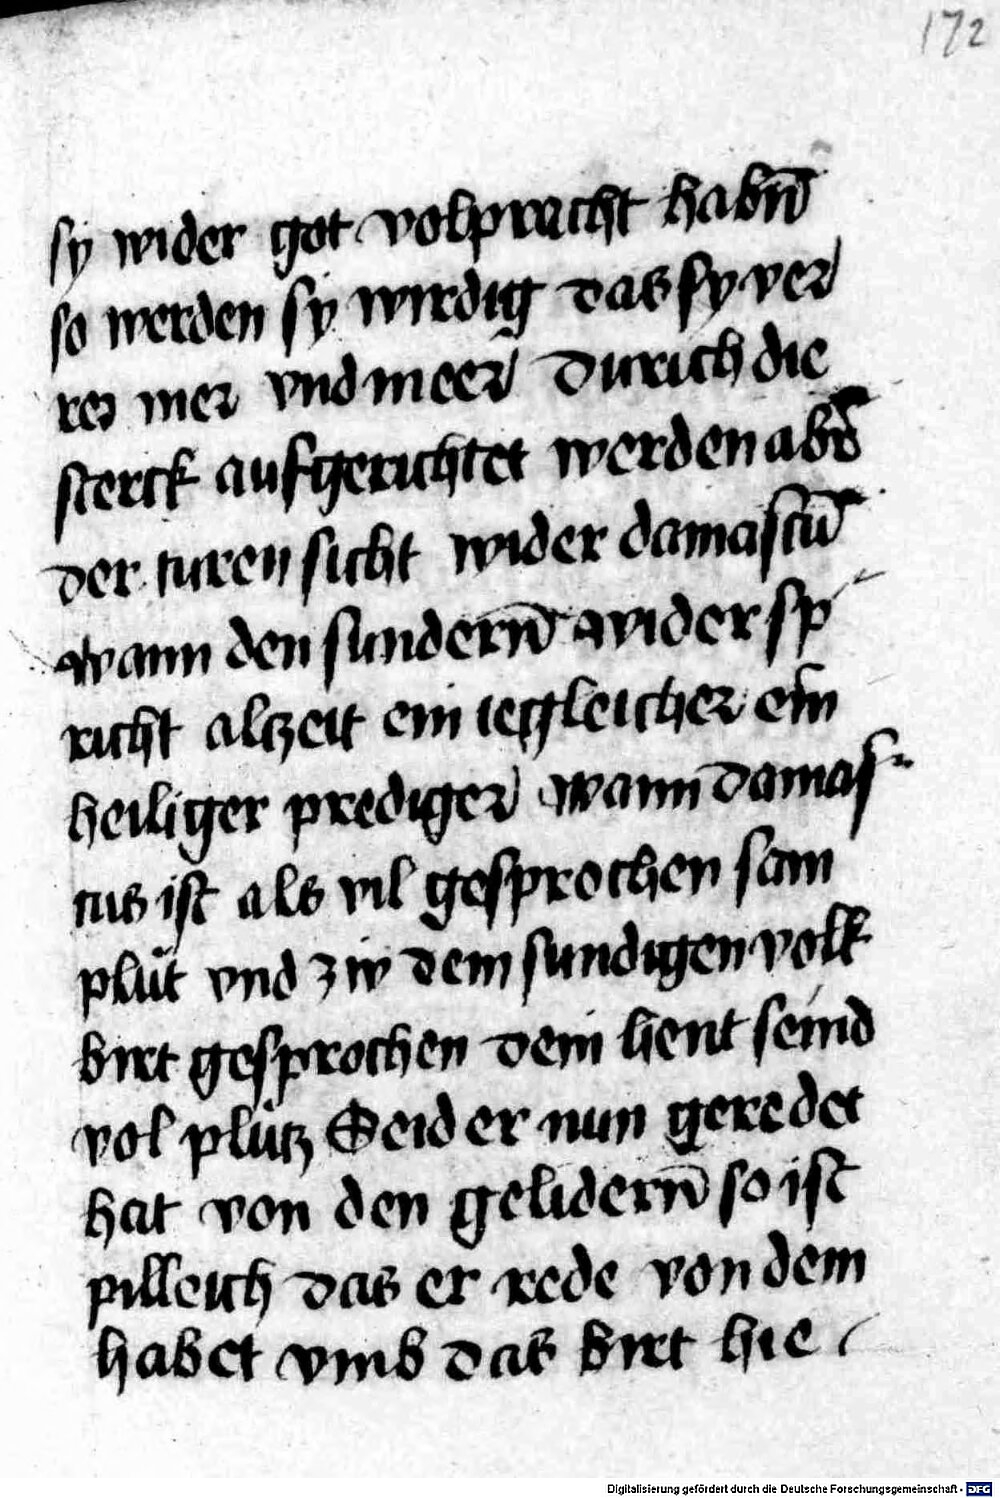 172
sy wider got volpracht habn̄
so werden sy wirdig das sy ver
rer mer vnd meer durich die
sterck aufgerichtet werden ab̄
der turen sicht wider damascū
wann den sundern̄ wider sp
richt altzeit ein iegleicher ein
heiliger prediger wann damas
cus ist als vil gesprochen sam
plůt vnd zw dem sundigen volk
birt gesprochen dein hent seind
vol plůtz Seid er nun geredet
hat von den gelidern̄ so ist
pilleich das er rede von dem
habet vmb das birt hie
Digitalisierung gefördert durch die Deutsche Forschungsgemeinschaft - DFG